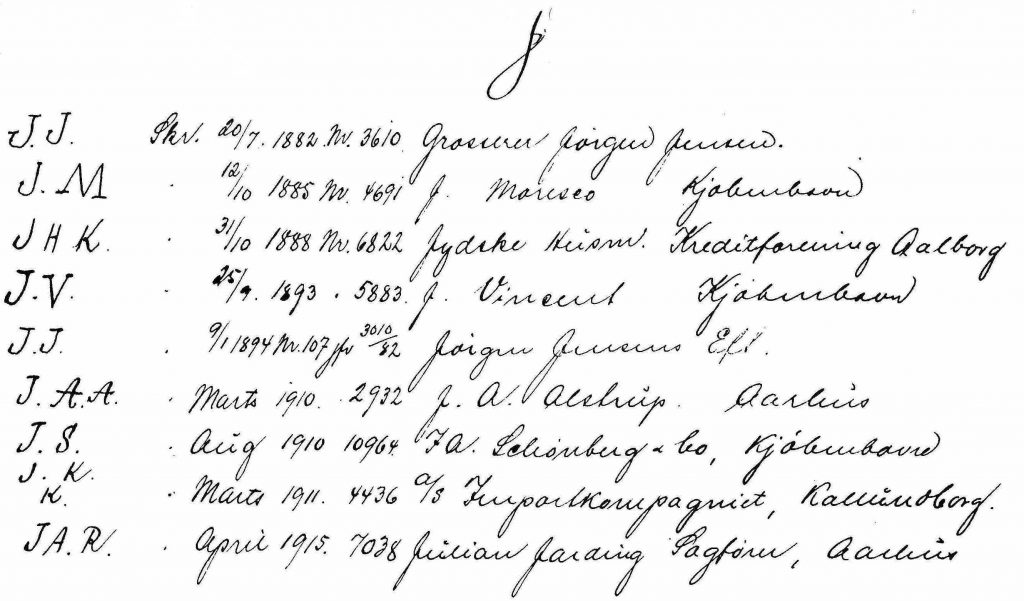 J
J.J. Skr. 20/7. 1882. Nr. 3610. Grosserer Jörgen Jensen.
J.M . 12/10 1885 Nr. 4691 J. Moresco Kjöbenhavn
J H K. . 31/10 1888 Nr. 6822 Jydske Husm. Kreditforening Aalborg
J.V. . 25/9. 1893 . 5883. J. Vincent Kjöbenhavn
J.J. . 9/1 1894 Nr. 107 jfr 3010/82 Jörgen Jensens Eft.
J.A.A. . Marts 1910. . 2932 J. A. Alstrup. Aarhus
J.S. . Aug 1910 10964. J.A. Schönberg & Co, Kjöbenhavn
J.K.
K. . Marts 1911. 4436 A/S Importkompagniet, Kallundborg.
J A.R. . April 1915. 7038 Julian Sagförer, Aarhus